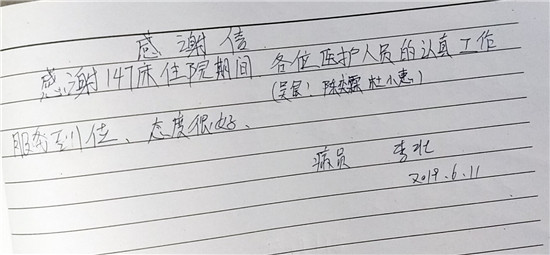 感谢信
感谢147床住院期间 各位医护人员的认真工作
杜小惠)
服务到位、态度很好、
病员 李壮
2019.6.11